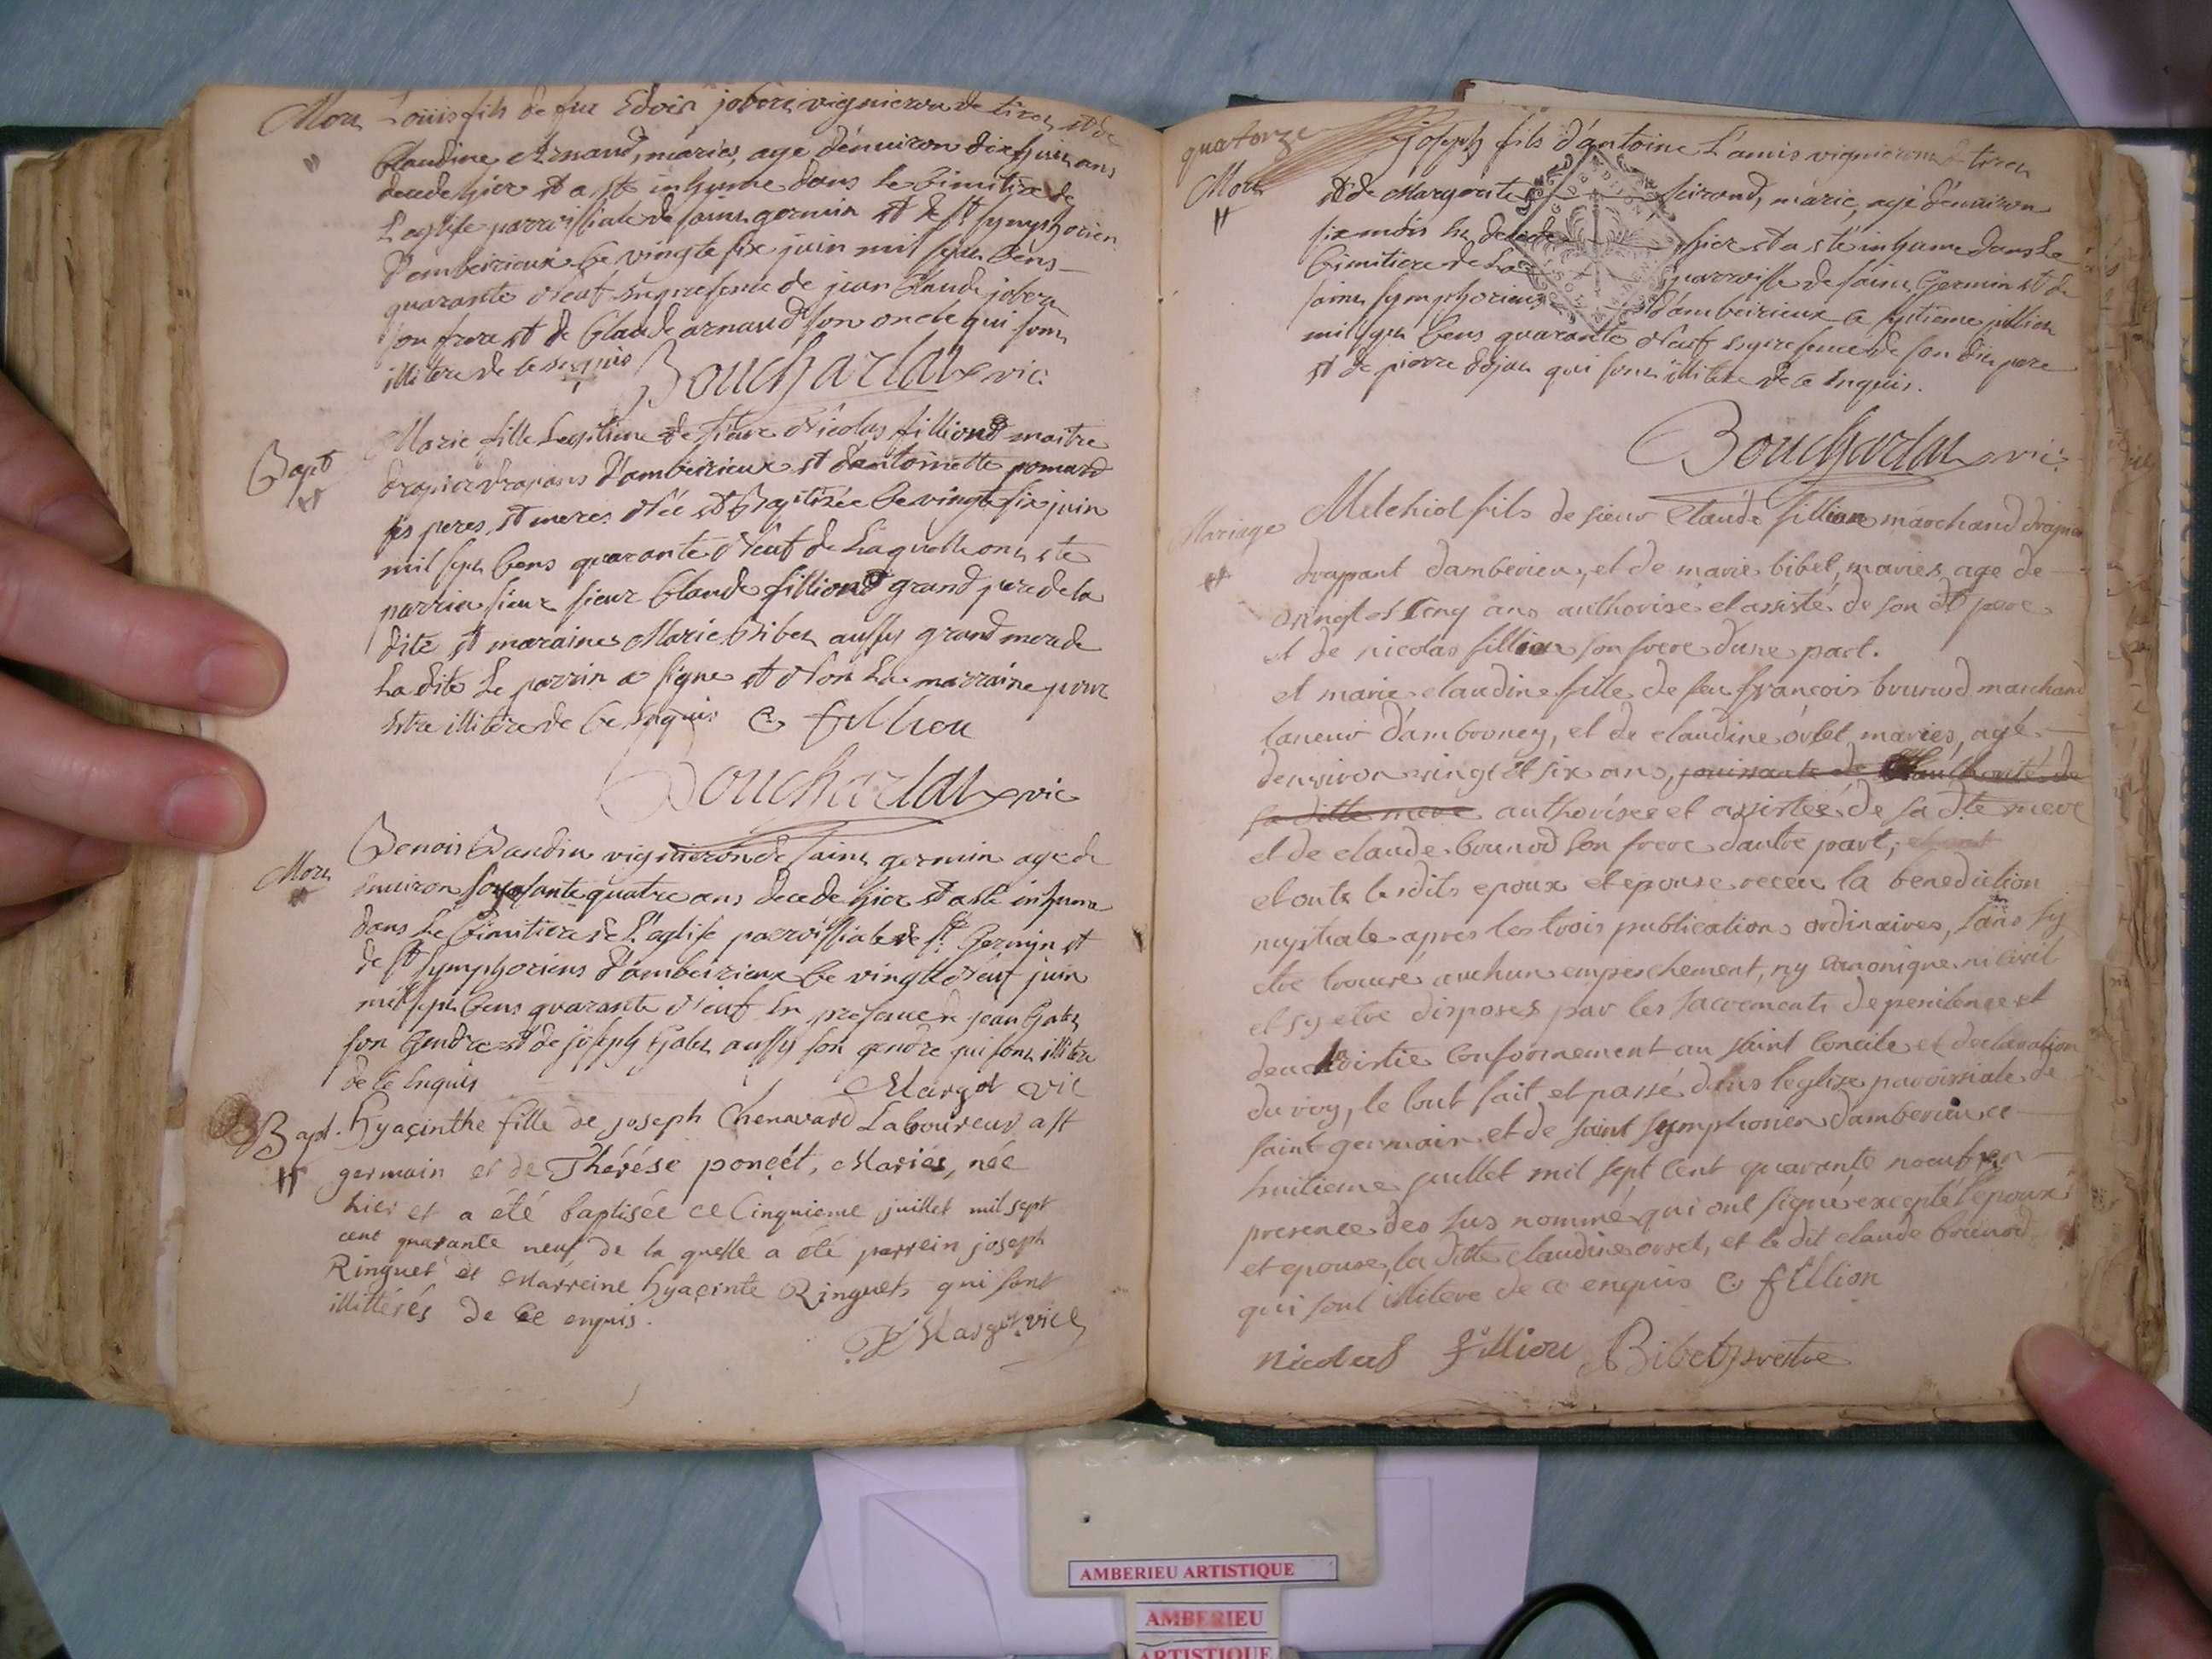 Mort Louis fils de feu Edoir jobert vigneron de tiret et de
Claudine Arnaud, mariés, age d'environ dix huit ans
decede hier et a été inhumé dans le Cimitiere de
L'eglise parroissiale de saint germin et de st symphorien
d'ambeirieux ce vingte six juin mil sept Cens
quarante Neuf en presence de jean Claude jobert
son frere et de Claude arnaud son oncle qui sont
illitere de ce enquis Bouchardat vic:
Bapt Marie fille Legitime de sieur Nicolas filliond maitre
drapier drapans d'ambeirieux et d'antoinette pomard
ses peres et meres Née et Baptizée Le vingte six juin
mil sept Cens quarante Neuf de Laquelle ont été
parrin sieur sieur Claude filliond grand pere de la
dite et maraine Marie Bibet aussy grand mere de
La dite Le parrin a signé et Non La marraine pour
estre illitere de ce Enquis C fillion
Bouchardat vic
Mort Benois Baudin vigneron de saint germin age de
Environ soixsante quatre ans decede hier et a été inhumé
dans Le Cimitiere de L'eglise parroissiale de st. Germin et
de st symphoriens d'ambeirieux ce vingte Neuf juin
mil sept Cens quarante Neuf En presence de jean Gabet
son Gendre et de joseph Gabet aussy son gendre qui sont illitere
de ce Enquis Margot vic
Bapt. hyaçinthe fille de joseph Chenavard Laboureur a st
germain et de Thérése ponçét, Mariés, née
hier et a été baptisée ce Cinquieme juillet mil sept
cent quarante neuf de la quelle a été parrein joseph
Ringuet et Marreine hyaçinte Ringuet qui sont
illittérés de ce enquis.
Margot vic
quatorze
Mort joseph fils d'antoine L'amis vigneron de tiret
et de Margueritte sirand, marié, agé d'environ
six mois decede hier et a été inhumé dans Le
Cimitiere de La parroisse de saint Germin et de
saint symphorien d'ambeirieux ce septieme juillet
mil sept Cens quarante Neuf En presence de son dit pere
et de pierre dejat qui sont illitere de ce Enquis.
Bouchardat vic:
Mariage Melchiol fils de sieur Claude fillion marchand drapier
drapant damberieu, et de marie bibet, mariés, age de
vingt et cinq ans authorisé et assisté de son dt pere
et de nicolas fillion son frere d'une part.
et marie claudine fille de feu françois brunod marchand
taneur d'ambroney, et de claudine orset, mariés, agé
denviron vingt et six ans, jouissante de l'authorité de
sa ditte mere authorisée et assistée de sa dte mere
et de claude brunod son frere dautre part, et ont
et onts lesdits epoux et epouse receu la benediction
nuptiale apres les trois publications ordinaires, sans sy
etre trouvé auchun empeschement, ny canonique ni civil
et sy etre disposes par les sacrements de penitence et
deucharistie conformement au saint concile et declaration
du roy, le tout fait et passé dans leglise paroissiale de
saint germain et de saint symphorien damberieu ce
huitieme juillet mil sept cent quarante noeuf en
presence des sus nommé qui ont signé excepté l'epoux
et epouse, la ditte claudine orset, et le dit claude brunod
qui sont illitere de ce enquis C fillion
nicolas fillion Bibet prestre
AMBERIEU ARTISTIQUE
AMBERIEU
ARTISTIQUE